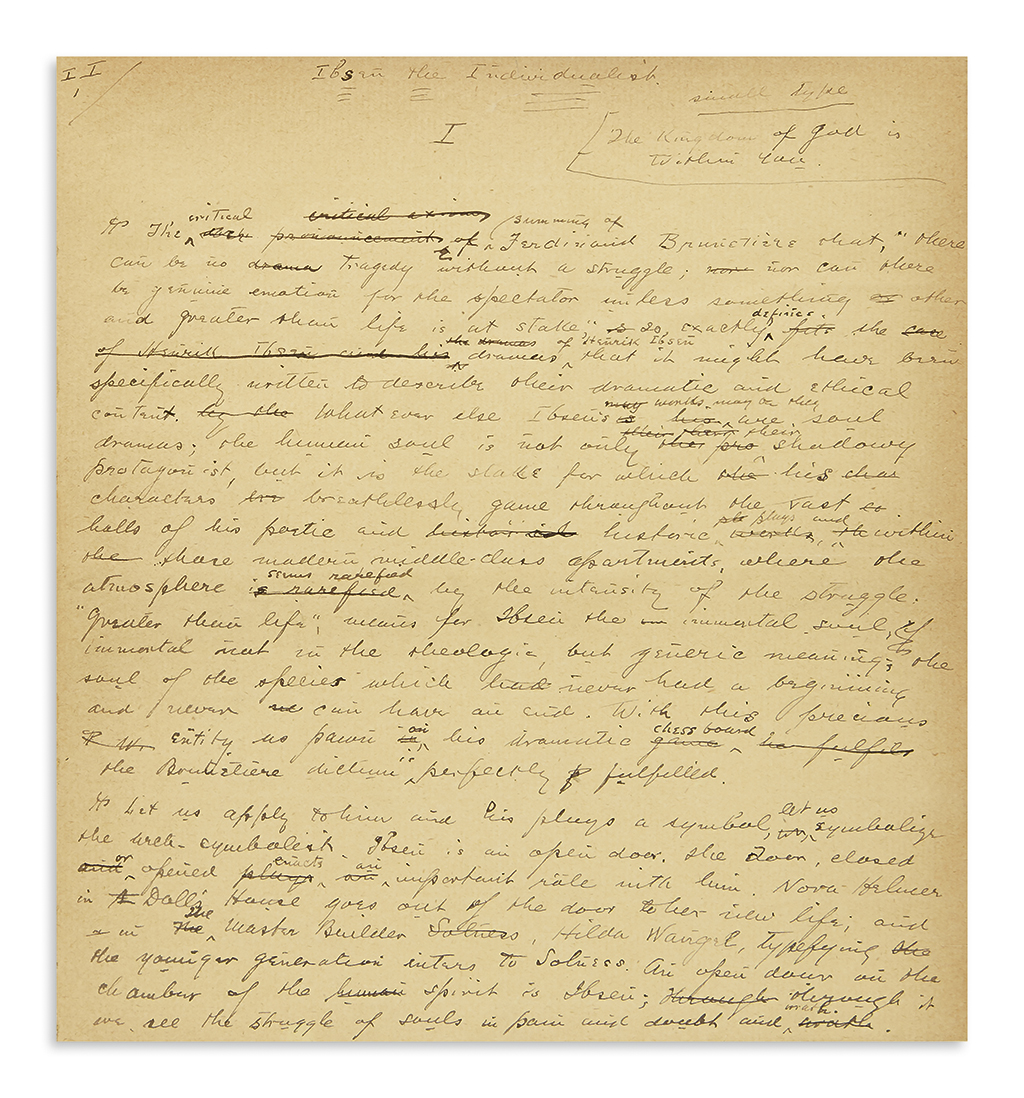 II
Ibsen the Individualist.
small type
I
[The Kingdom of God is
Within You.
critical critical axiom summing of
¶ The pronouncements of Ferdinand Brunetière that, "there
can be no drama tragedy without a struggle; nor can there
be genuine emotion for the spectator unless something other
and greater than life is at stake," is so exactly defines fits the case
of Henrik Ibsen and his the dramas of Henrik Ibsen dramas that it might have been
specifically written to describe their dramatic and ethical
content. by the Whatever else Ibsen's works may be they are soul
dramas; the human soul is not only their shadowy
protagonist, but it is the stake for which the his char
characters breathlessly game throughout the vast
halls of his poetic and historical historic works, plays and within
the those modern middle-class apartments, where the
atmosphere is rarefied seems rarefied by the intensity of the struggle.
"Greater than life", means for Ibsen the immortal soul,
immortal not in the theologic, but generic meaning; the
soul of the species which had never had a beginning
and never can have an end. With this precious
entity as pawn in on his dramatic game chess board he fulfils
the Brunetière dictum is perfectly fulfilled.
¶ Let us apply to him and his plays a symbol, let us symbolize
the arch-symbolist. Ibsen is an open door. The door, closed
and or opened plays enacts an important rôle with him. Nora Helmer
in A Doll's House goes out of the door to her new life; and
in The The Master Builder Solness, Hilda Wangel, typefying the
the younger generation enters to Solness. An open door on the
chamber of the human spirit is Ibsen; through through it
we see the struggle of souls in pain and doubt and wrath wrath.